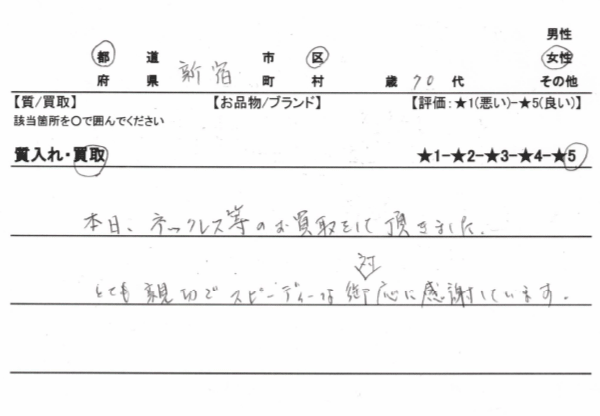 男性
都 道 市 区 女性
府 県 新宿 町 村 歳 70 代 その他
【質/買取】 【お品物/ブランド】 【評価:★1(悪い)-★5(良い)】
該当箇所を〇で囲んでください
質入れ・買取 ★1-★2-★3-★4-★5
本日、ネックレス等のお買取をして頂きました。
対
とても親切でスピーディーな御応に感謝しています。